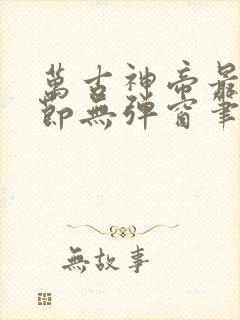 萬古神帝最
節無彈窗筆
無故事